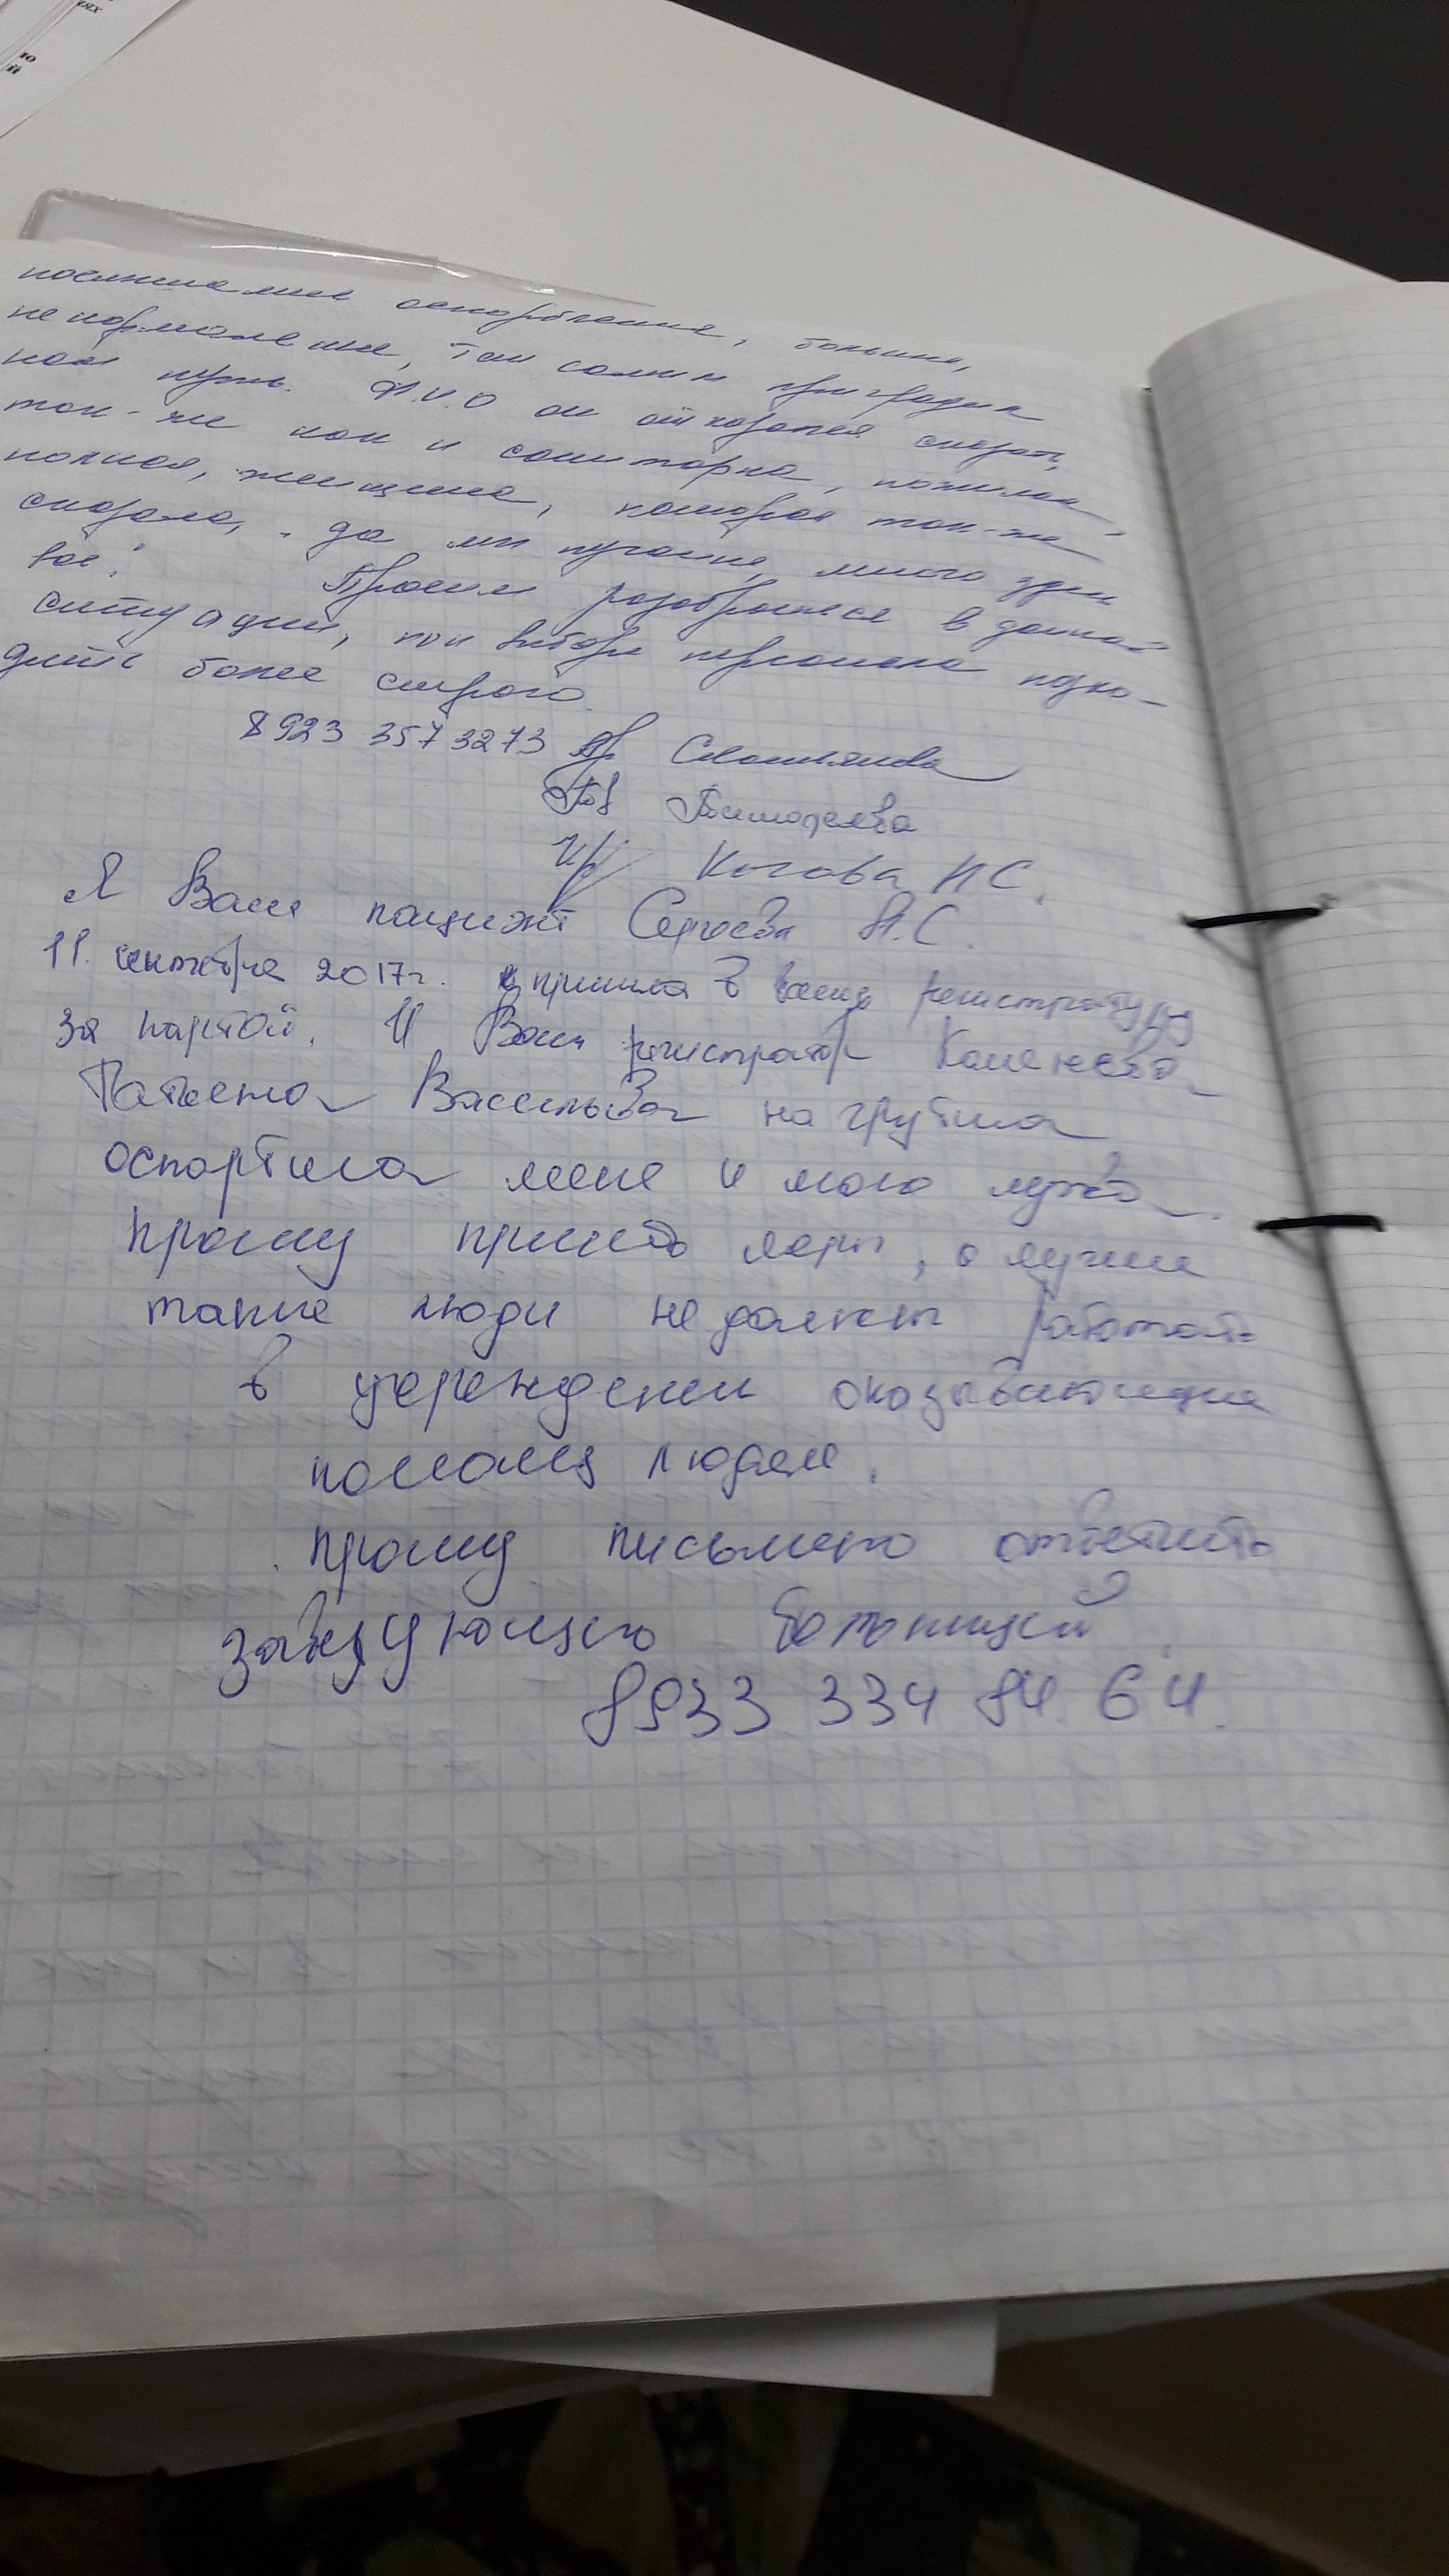 ях
ю
й
оскорбления, больные,
ненормальные, тем самым преградил
нам путь. Ф.И.О он отказался сказать,
так-же как и санитарка, пожилая,
полная, женщина, которая так-же
сказала, да не пугайте, много здесь
вас.
Просим разобраться в данной
ситуации, при выборе персонала подхо-
дить более строго.
8923 357 3273
Тимофеева
Когова Н С.
Я Ваш пациент Сергеева А.С.
11. сентября 2017г. я пришла в вашу регистратуру
за картой. И Ваш регистратор Каменева
Татьяна Васильевна нагрубила
оспорбила меня и моего мужа.
прошу принять меры, а лучше
такие люди не должны работать
в учреждении оказывающие
помощь людям.
прошу письмено ответить
заведующего больницей
8933 334 84 64.